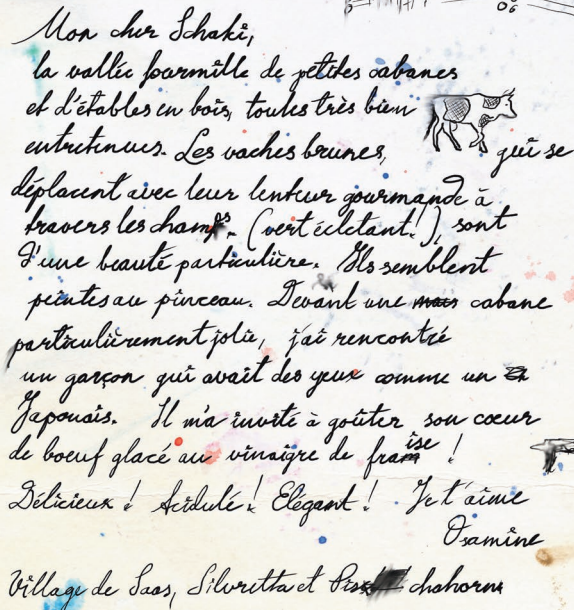 Mon cher Schaki,
la vallée fourmille de petites cabanes
et d'étables en bois, toutes très bien
entretenues. Les vaches brunes,
qui se
déplacent avec leur lenteur gourmande à
travers les champs. (vert éclatant!), sont
d'une beauté particulière. Ils semblent
peintes au pinceau. Devant une cabane
particulièrement jolie, j'ai rencontré
un garçon qui avait des yeux comme un
Japonais. Il m'a invité à goûter son cœur
de boeuf glacé au vinaigre de framise !
Délicieux ! Acidulé ! Elégant ! Je t'aime
Osamine
Village de Saas, Silvretta et chahorn